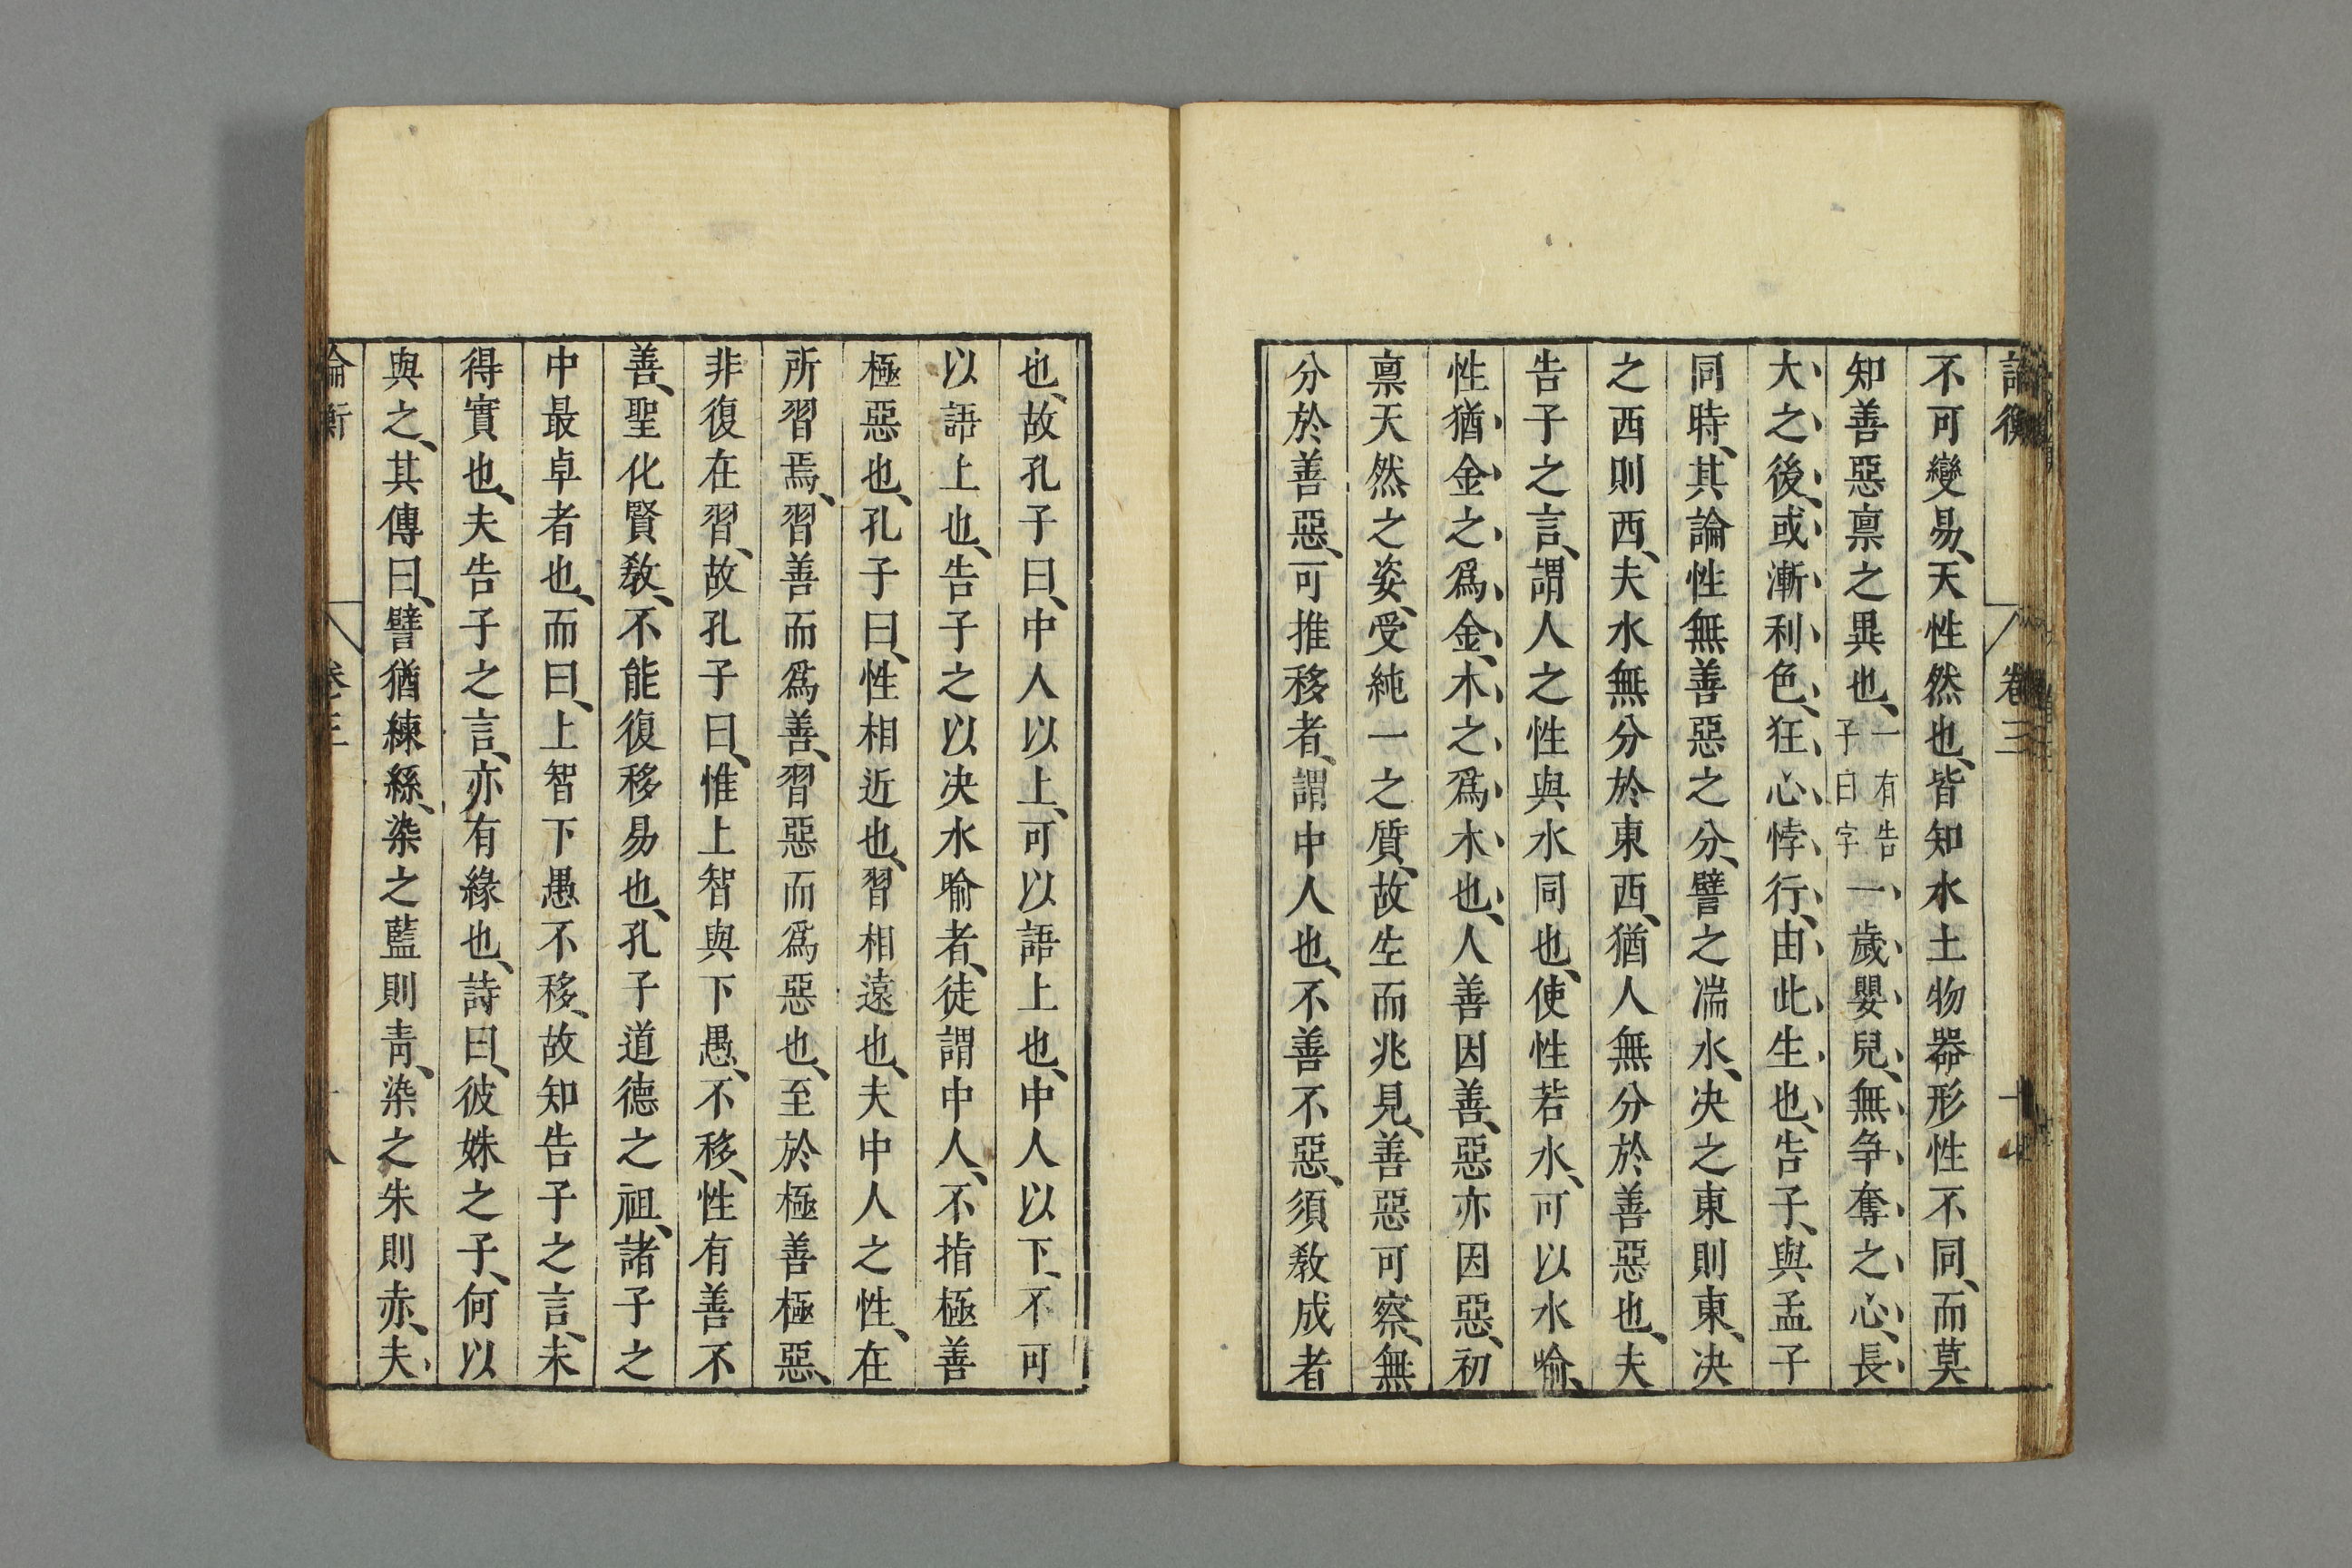 論衡 卷三 十七
不可變易、天性然也、皆知水土物器形性不同、而莫
知善惡禀之異也、一有告子曰字一歲嬰兒、無争奪之心、長
大之後、或漸利色、狂心悖行、由此生也、告子、與孟子
同時、其論性無善惡之分、譬之湍水、决之東則東、决
之西則西、夫水無分於東西、猶人無分於善惡也、夫
告子之言、謂人之性與水同也、使性若水、可以水喻、
性猶金之爲金、木之爲木也、人善因善、惡亦因惡、初
禀天然之姿、受純一之質、故生而兆見、善惡可察、無
分於善惡、可推移者、謂中人也、不善不惡、須敎成者
也、故孔子曰、中人以上、可以語上也、中人以下、不可
以語上也、告子之以决水喻者、徒謂中人、不指極善
極惡也、孔子曰、性相近也、習相遠也、夫中人之性、在
所習焉、習善而爲善、習惡而爲惡也、至於極善極惡、
非復在習、故孔子曰、惟上智與下愚、不移、性有善不
善、聖化賢敎、不能復移易也、孔子道德之祖、諸子之
中最卓者也、而曰、上智下愚不移、故知告子之言、未
得實也、夫告子之言、亦有緣也、詩曰、彼姝之子、何以
與之、其傳曰、譬猶練絲、染之藍則靑、染之朱則赤、夫
論衡 卷三